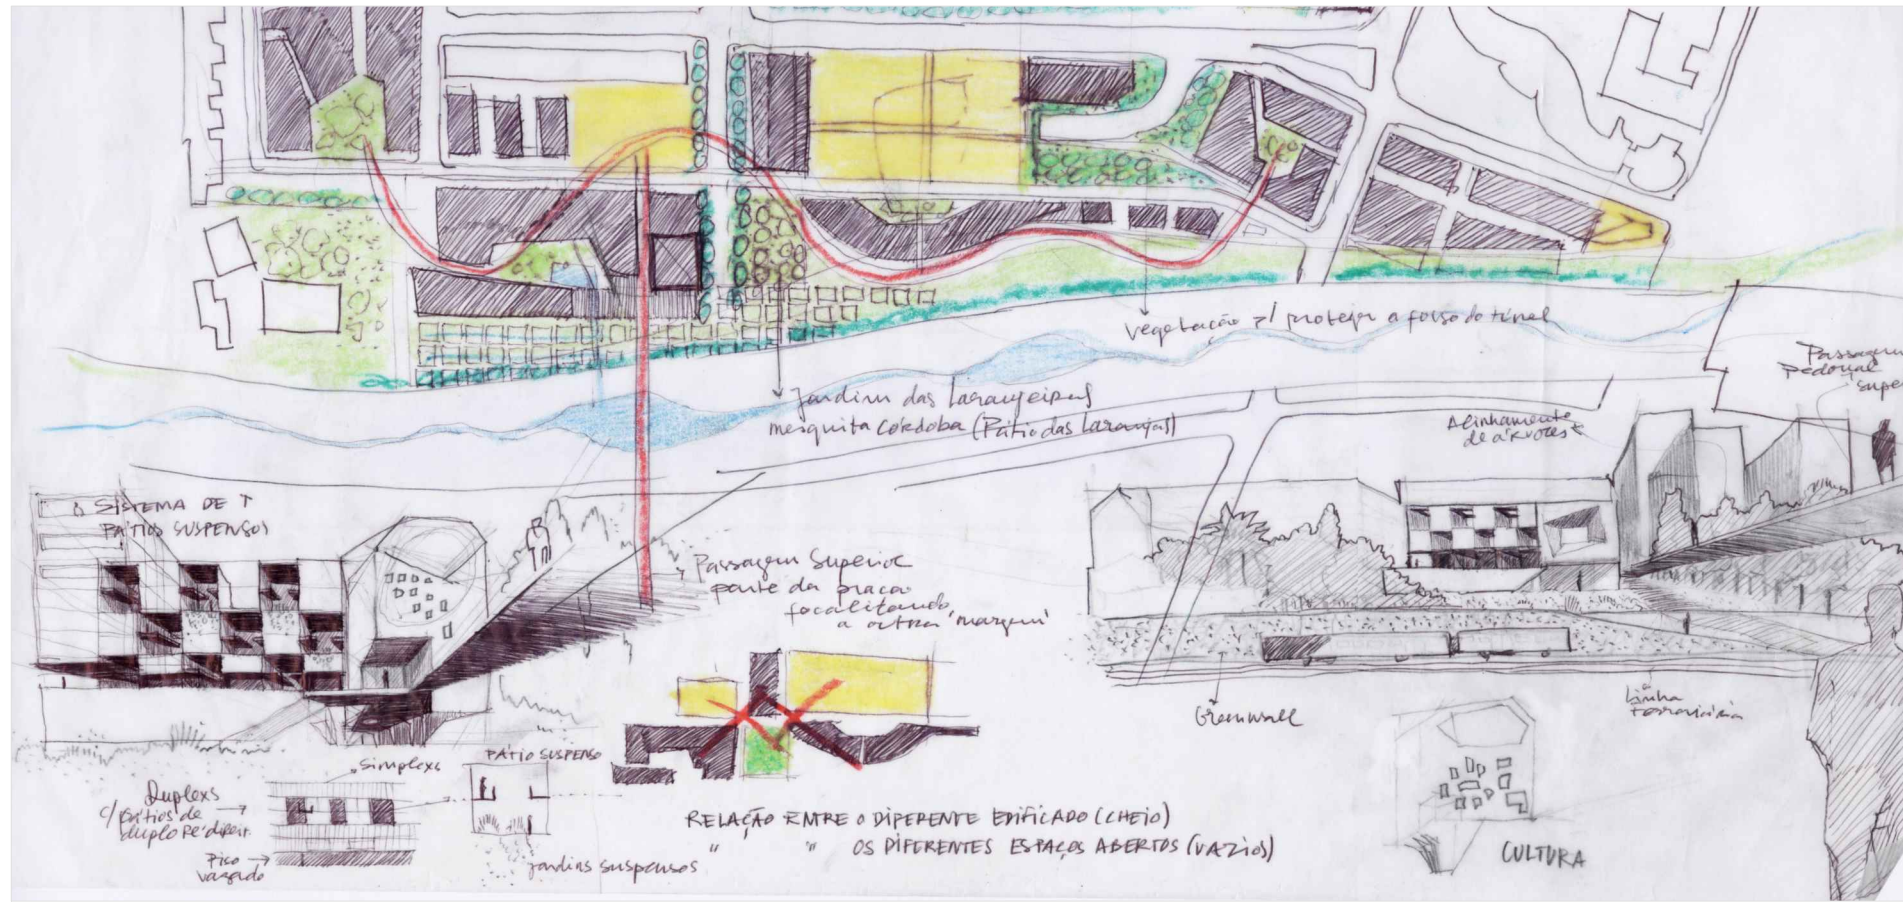 vegetação p/ proteger a fosso do túnel
Passagem
Pedonal
supe
jardim das laranjeiras
mesquita Cordoba (Pátio das laranjas)
Alinhamento
de árvores
SISTEMA DE
PÁTIOS SUSPENSOS
Passagem Superior
parte da praça
focalizando
a outra 'margem'
Greenwall
Linha
Ferroviária
Simplexs
PÁTIO SUSPENSO
Duplexs
c/ pátios de
duplo Pé direit.
Piso
vazado
jardins suspensos
RELAÇÃO ENTRE O DIFERENTE EDIFICADO (CHEIO)
" " OS DIFERENTES ESPAÇOS ABERTOS (VAZIOS)
CULTURA